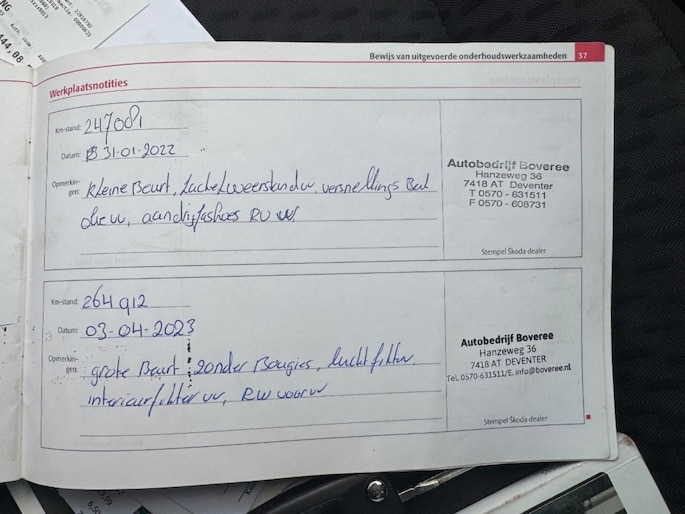 Bewijs van uitgevoerde onderhoudswerkzaamheden 37
Werkplaatsnotities
Km-stand: 247081
Datum: 31-01-2022
Opmerkin-
gen: kleine Beurt, kachelweerstand vv, versnellings Bak
olie vv, aandrijfashoes RV vv.
Autobedrijf Boveree
Hanzeweg 36
7418 AT Deventer
T 0570 - 631511
F 0570 - 608731
Stempel Škoda dealer
Km-stand: 264912
Datum: 03-04-2023
Opmerkin-
gen: grote Beurt zonder Bougies, luchtfilter
interieurfilter vv, RW voor vv
Autobedrijf Boveree
Hanzeweg 36
7418 AT DEVENTER
Tel. 0570-631511/E. info@boveree.nl
Stempel Škoda dealer
444,08